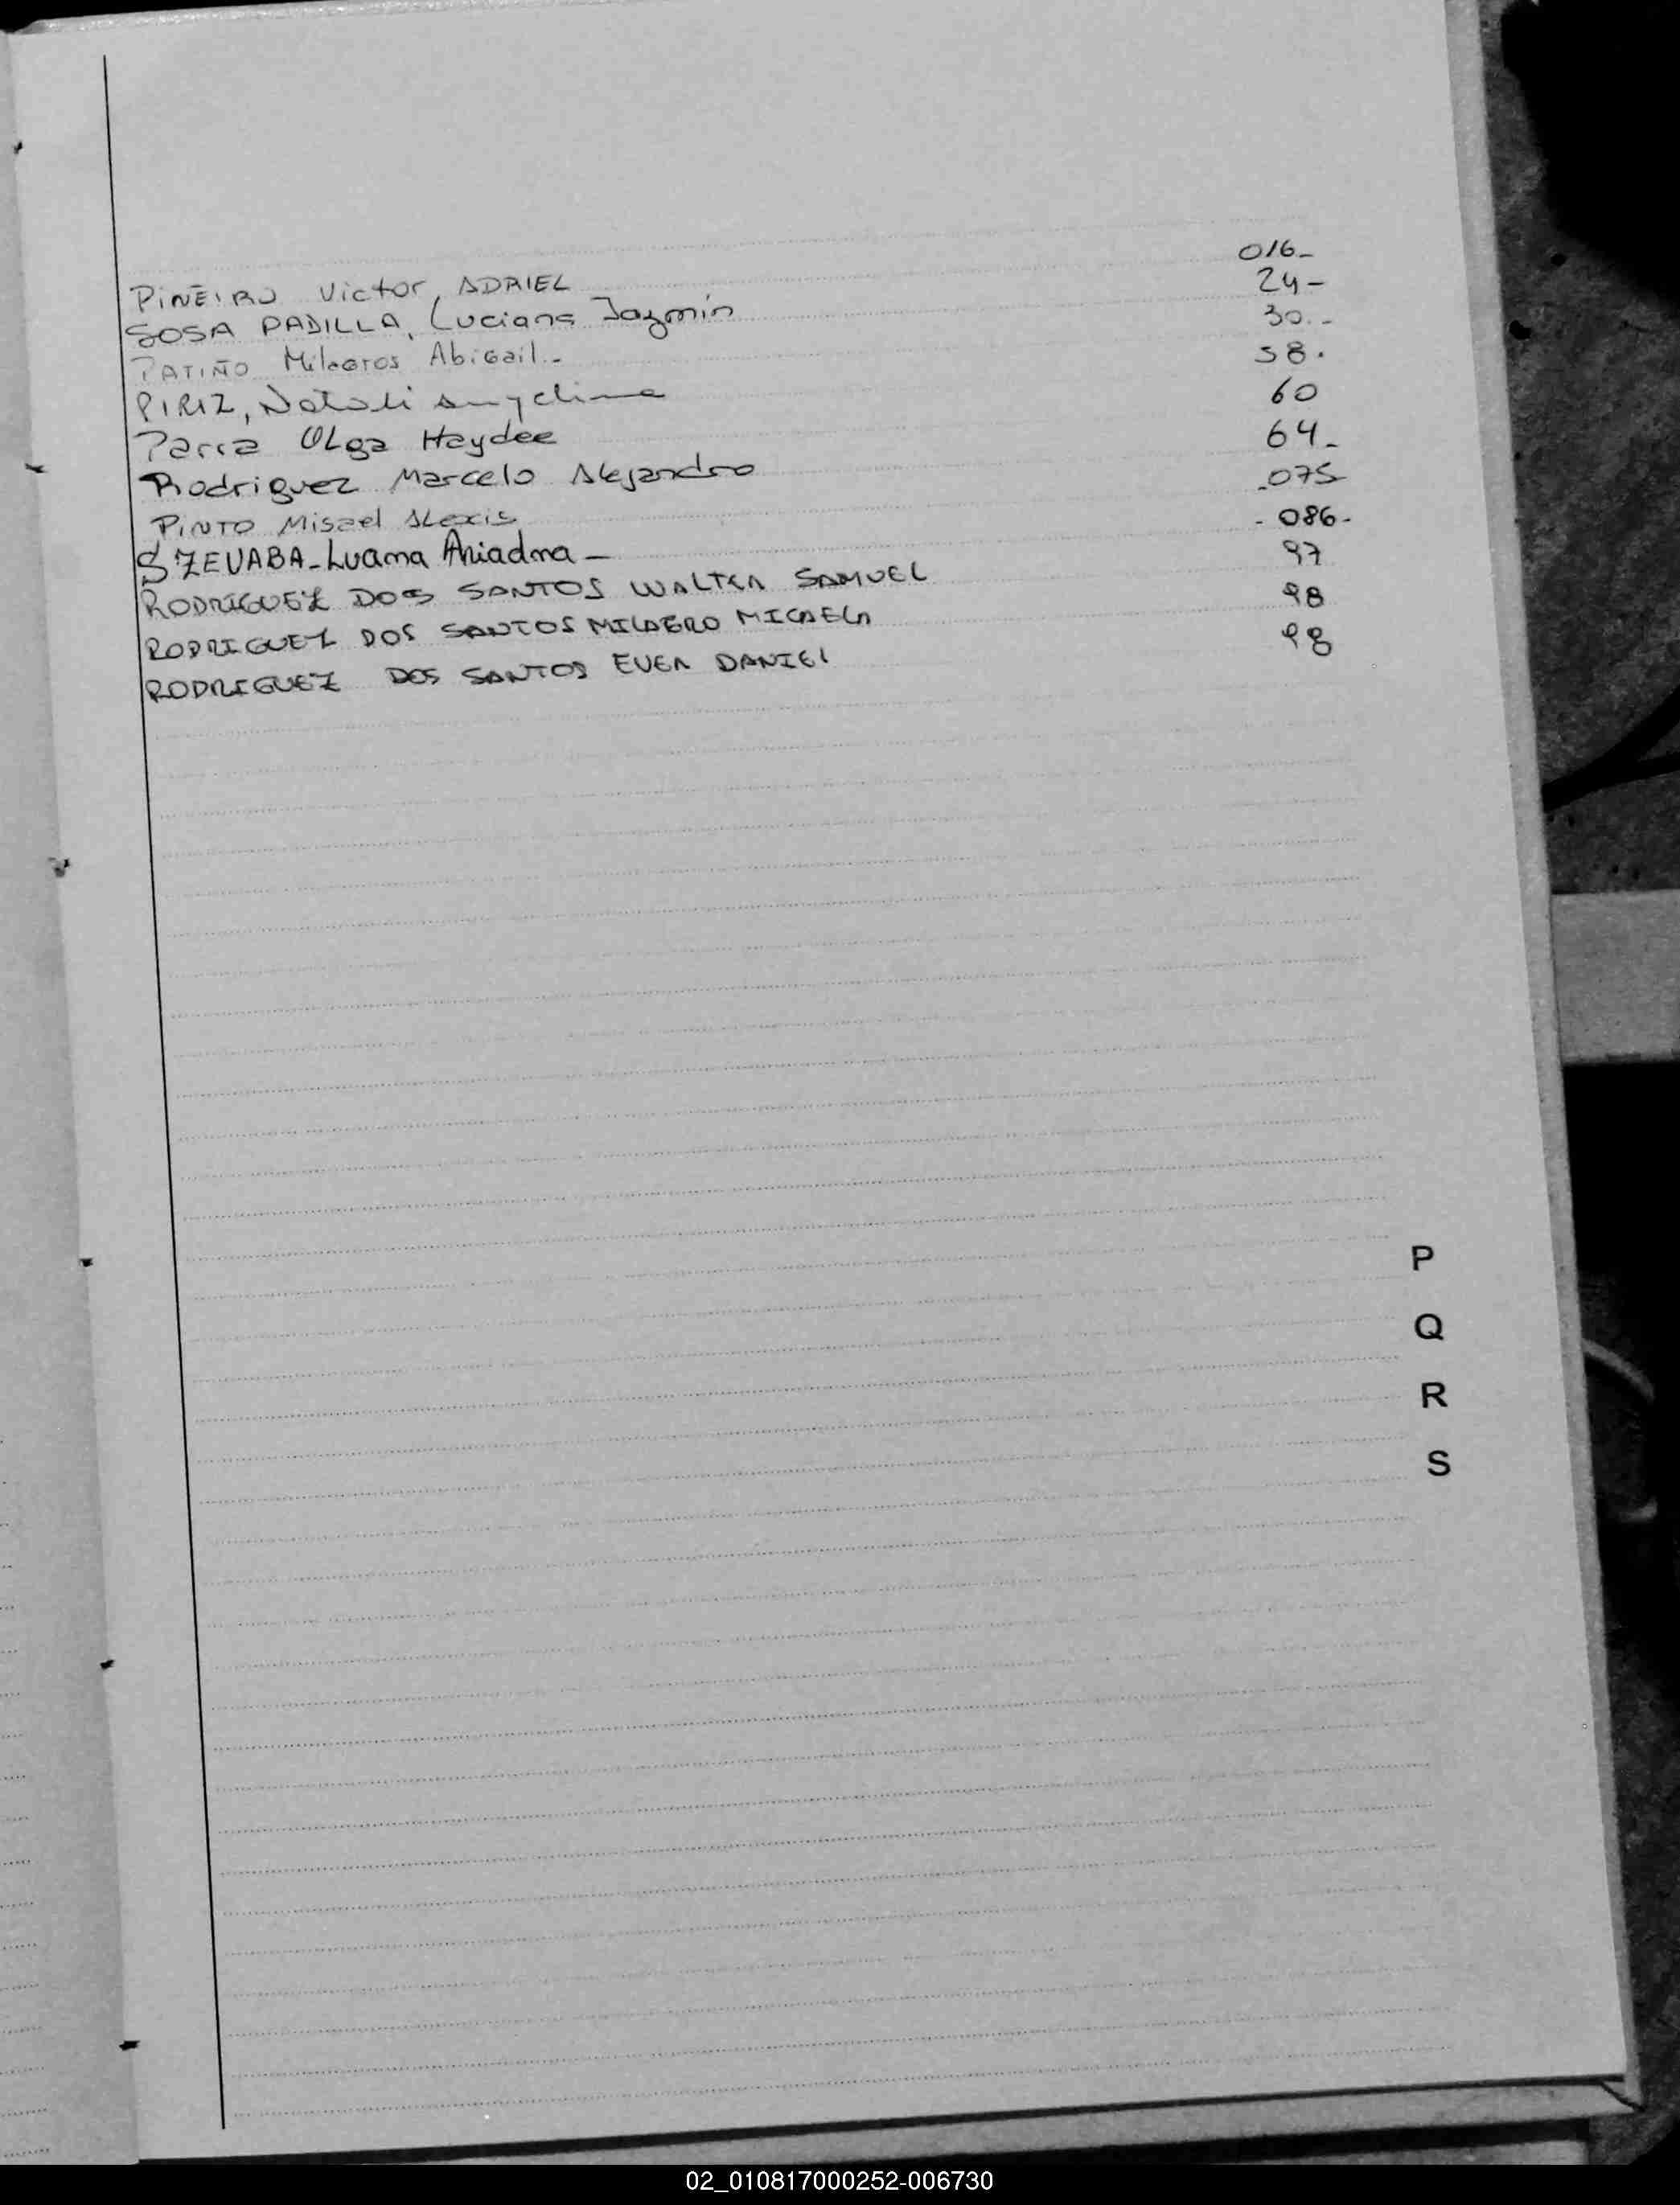 PIÑEIRO Victor, ADRIEL 016-
SOSA PADILLA, Luciana Jazmín 24-
PATIÑO Milagros Abigail.- 30.-
PIRIZ, Natali 58.
Parra OLga Haydee 60
Rodriguez Marcelo Alejandro 64-
PINTO Misael ALexis -075-
SZEVABA-Luana Ariadna- - 086-
RODRIGUEZ DOS SANTOS WALTER SAMUEL 97
RODRIGUEZ DOS SANTOS MILAGRO MICAELA 98
RODRIGUEZ DOS SANTOS EVER DANIEL 98
P
Q
R
S
02_010817000252-006730